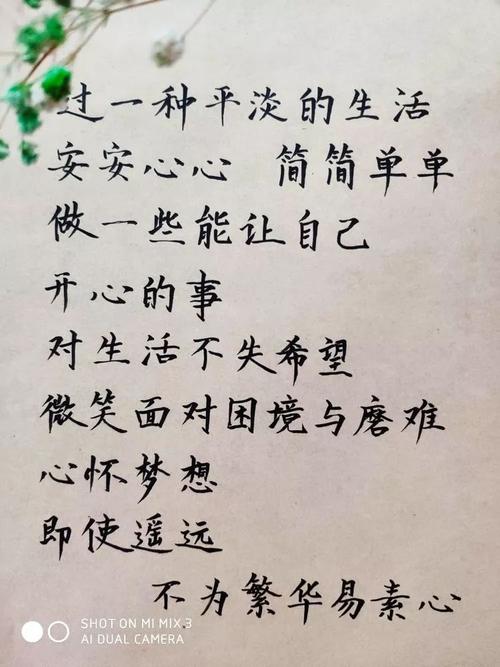 过一种平淡的生活
安安心心 简简单单
做一些能让自己
开心的事
对生活不失希望
微笑面对困境与磨难
心怀梦想
即使遥远
不为繁华易素心
SHOT ON MI MIX 3
AI DUAL CAMERA